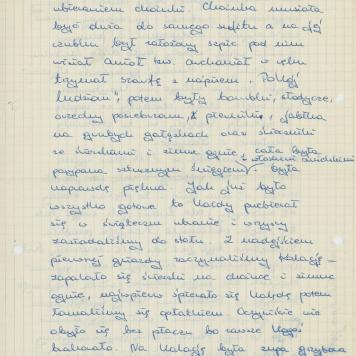 ubieraniem choinki. Choinka musiała
być duża do samego sufitu a na jej
czubku był założony szpic pod nim
wisiał anioł tzw. archanioł w ręku
trzymał szarfę z napisem „Pokój
ludziom", potem były bombki, słodycze,
orzechy posrebrzane, pierniki, jabłka
na grubych gałęziach oraz świeczniki
ze świeczkami i zimne ognie, cała była
posypana sztucznym śniegiem i włosami anielskimi była
naprawdę piękna. Jak już było
wszystko gotowe to każdy przebierał
się w świąteczne ubranie i wszyscy
zasiadaliśmy do stołu. Z nadejściem
pierwszej gwiazdy zaczynaliśmy kolację –
zapalało się świeczki na choince i zimne
ognie, najpierw śpiewało się kolędę potem
łamaliśmy się opłatkiem. Oczywiście nie
obyło się bez płaczu bo zawsze kogoś
brakowało. Na kolację była zupa grzybowa